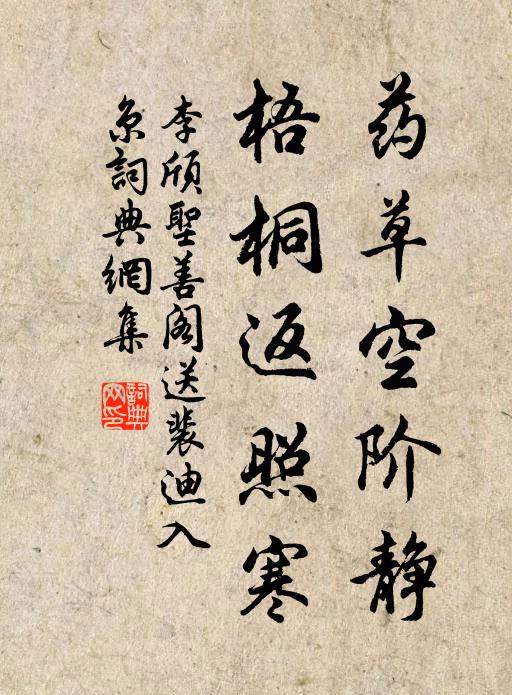 药草空阶静
梧桐返照寒
李颀聖善阁送裴迪入
京詞典網集
詞典
网印